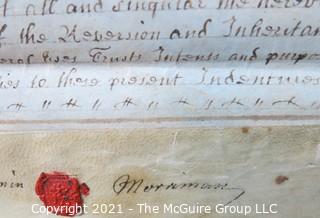 all and singular the hereb
of the Reversion and Inheritan
Uses Trusts Intents and purp
to these present Indentures
min Morriman
Copyright © 2021 - The McGuire Group LLC